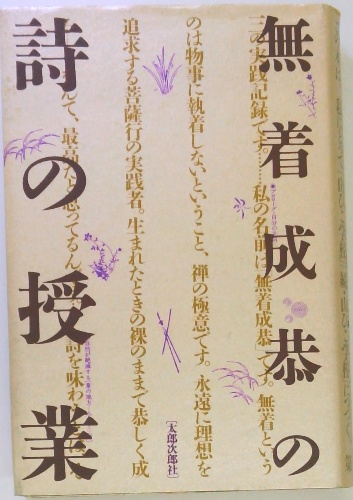 無着成恭の
詩の授業
三の実践記録です……私の名前は無着成恭です。無着という
のは物事に執着しないということ、禅の極意です。永遠に理想を
追求する菩薩行の実践者。生まれたときの裸のままで恭しく成
んて、最高だと思ってるん 詩を味わ
[太郎次郎社]